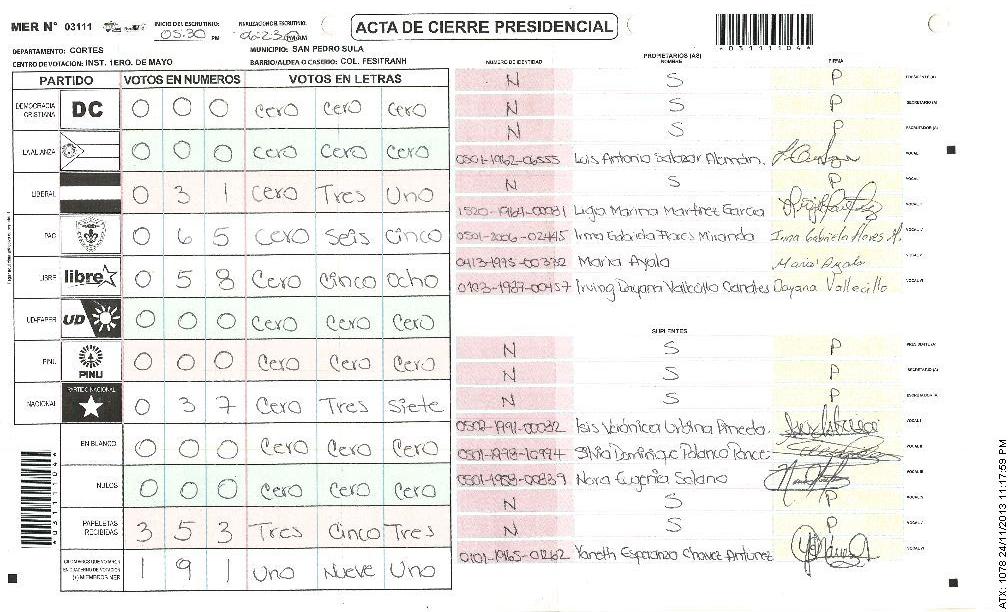 MER N° 03111
INICIO DEL ESCRUTINIO: 05:30 PM
FINALIZACION DEL ESCRUTINIO: 06:23 PM
ACTA DE CIERRE PRESIDENCIAL
DEPARTAMENTO: CORTES
MUNICIPIO: SAN PEDRO SULA
CENTRO DE VOTACION: INST. 1ERO. DE MAYO
BARRIO/ALDEA O CASERIO: COL. FESITRANH
PARTIDO VOTOS EN NUMEROS VOTOS EN LETRAS
DEMOCRACIA CRISTIANA DC 0 0 0 Cero Cero Cero
LA ALIANZA 0 0 0 Cero Cero Cero
LIBERAL 0 3 1 Cero Tres Uno
PAC 0 6 5 Cero Seis Cinco
LIBRE libre 0 5 8 Cero Cinco Ocho
UD-FAPER UD 0 0 0 Cero Cero Cero
PINU PINU 0 0 0 Cero Cero Cero
NACIONAL PARTIDO NACIONAL 0 3 7 Cero Tres Siete
EN BLANCO 0 0 0 Cero Cero Cero
NULOS 0 0 0 Cero Cero Cero
PAPELETAS RECIBIDAS 3 5 3 Tres Cinco Tres
(+) MIEMBROS MER 1 9 1 Uno Nueve Uno
PROPIETARIOS (AS)
NUMERO DE IDENTIDAD NOMBRE FIRMA
N S P PRESIDENTE (A)
N S P SECRETARIO (A)
N S P ESCRUTADOR (A)
0501-1962-06555 Luis Antonio Salazar Aleman. VOCAL I
N S P VOCAL II
1520-1964-00081 Ligia Marina Martinez Garcia
0501-2006-02445 Irma Gabriela Flores Miranda Irma Gabriela Flores M.
0413-1975-00332 Maria Ayala Maria Ayala
0103-1987-00457 Irving Dayana Vallecillo Canales Dayana Vallecillo
SUPLENTES
N S P
N S P SECRETARIO (A)
N S P
0502-1991-00032 Isis Verónica Urbina Pineda. VOCAL I
0501-1978-10994 Silvia Dominique Polanco Ponce VOCAL II
0501-1958-00839 Nora Eugenia Solano VOCAL III
N S P
N S P VOCAL V
0101-1965-01262 Yaneth Esperanza Chavez Antunez VOCAL VI
*03111104*
ATX: 1078 24/11/2013 11:17:59 PM